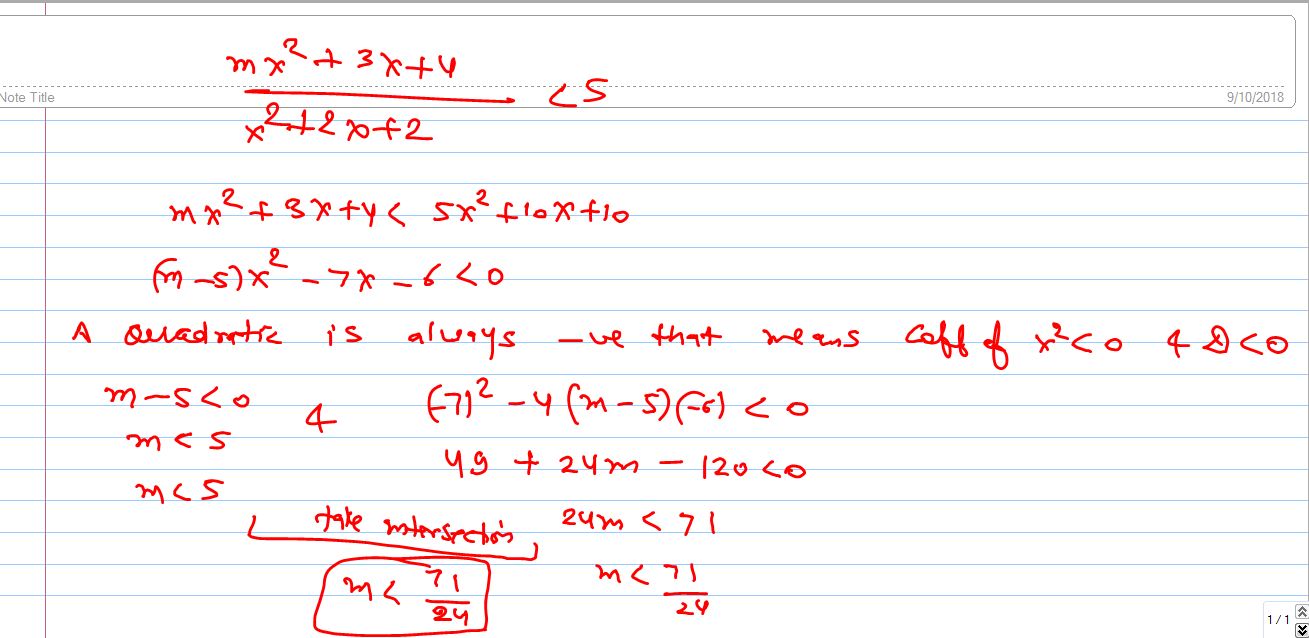 mx²+3x+4
<5
Note Title
9/10/2018
x²+2x+2
mx²+3x+4< 5x²+10x+10
(m-5)x²-7x-6<0
A quadratic is always -ve that means Coff of x²<0 & D<0
m-5<0 & (-7)²-4(m-5)(-6)<0
m<5
49+24m-120<0
m<5
take intersection
24m<71
m<71/24
m<71/24
1/1